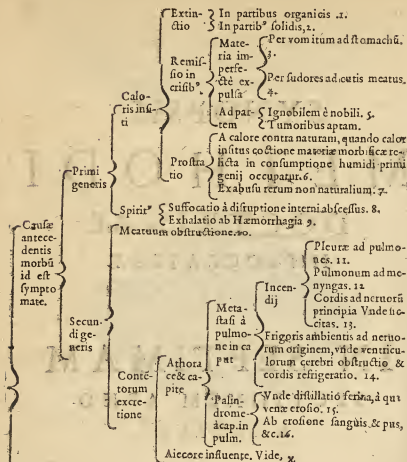 Extin-
ctio
In partibus organicis .1.
In partibꝰ solidis, 2.
Calo-
ris insi-
ti
Remis-
sio in
crisibꝰ
Mate-
ria im-
perfe-
ctè ex-
pulsa
Per vomitum ad stomachũ.
3.
Per sudores ad cutis meatus.
4.
Ad par-
tem
Ignobilem è nobili. 5.
Tumoribus aptam.
Prostra-
tio
A calore contra naturam, quando calor
insitus coctione materiæ morbificæ re-
licta in consumptione humidi primi-
genij occupatur. 6.
Ex abusu rerum non naturalium. 7.
Primi
generis
Spiritꝰ
Suffocatio à disruptione interni abscessus. 8.
Exhalatio ab Hæmorrhagia 9.
Causæ
antece-
dentis
morbũ
id est
sympto
mate.
Secun-
di ge-
neris
Meatuum obstructione. 10.
Conte-
torum
excre-
tione
Athora
ce & ca-
pite
Meta-
stasi à
pulmo-
ne in ca
put
Incen-
dij
Pleuræ ad pulmo-
nes. 11.
Pulmonum ad me-
nyngas. 12
Cordis ad neruorũ
principia Vnde sic-
citas. 13.
Frigoris ambientis ad neruo-
rum originem, vnde ventricu-
lorum cerebri obstructio &
cordis refrigeratio. 14.
Palin-
drome
à cap. in
pulm.
Vnde distillatio ferina, à qua
venæ erosio. 15.
Ab erosione sanguis & pus,
&c. 16.
A iecore influente. Vide,